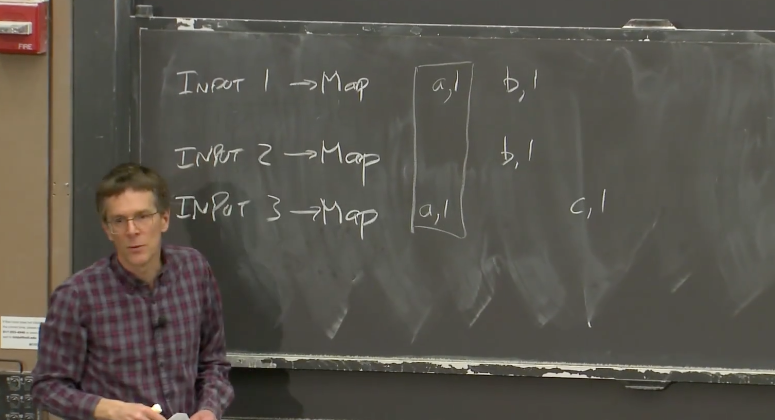 FIRE
INPUT 1 → Map a,1 b,1
INPUT 2 → Map b,1
INPUT 3 → Map a,1 c,1